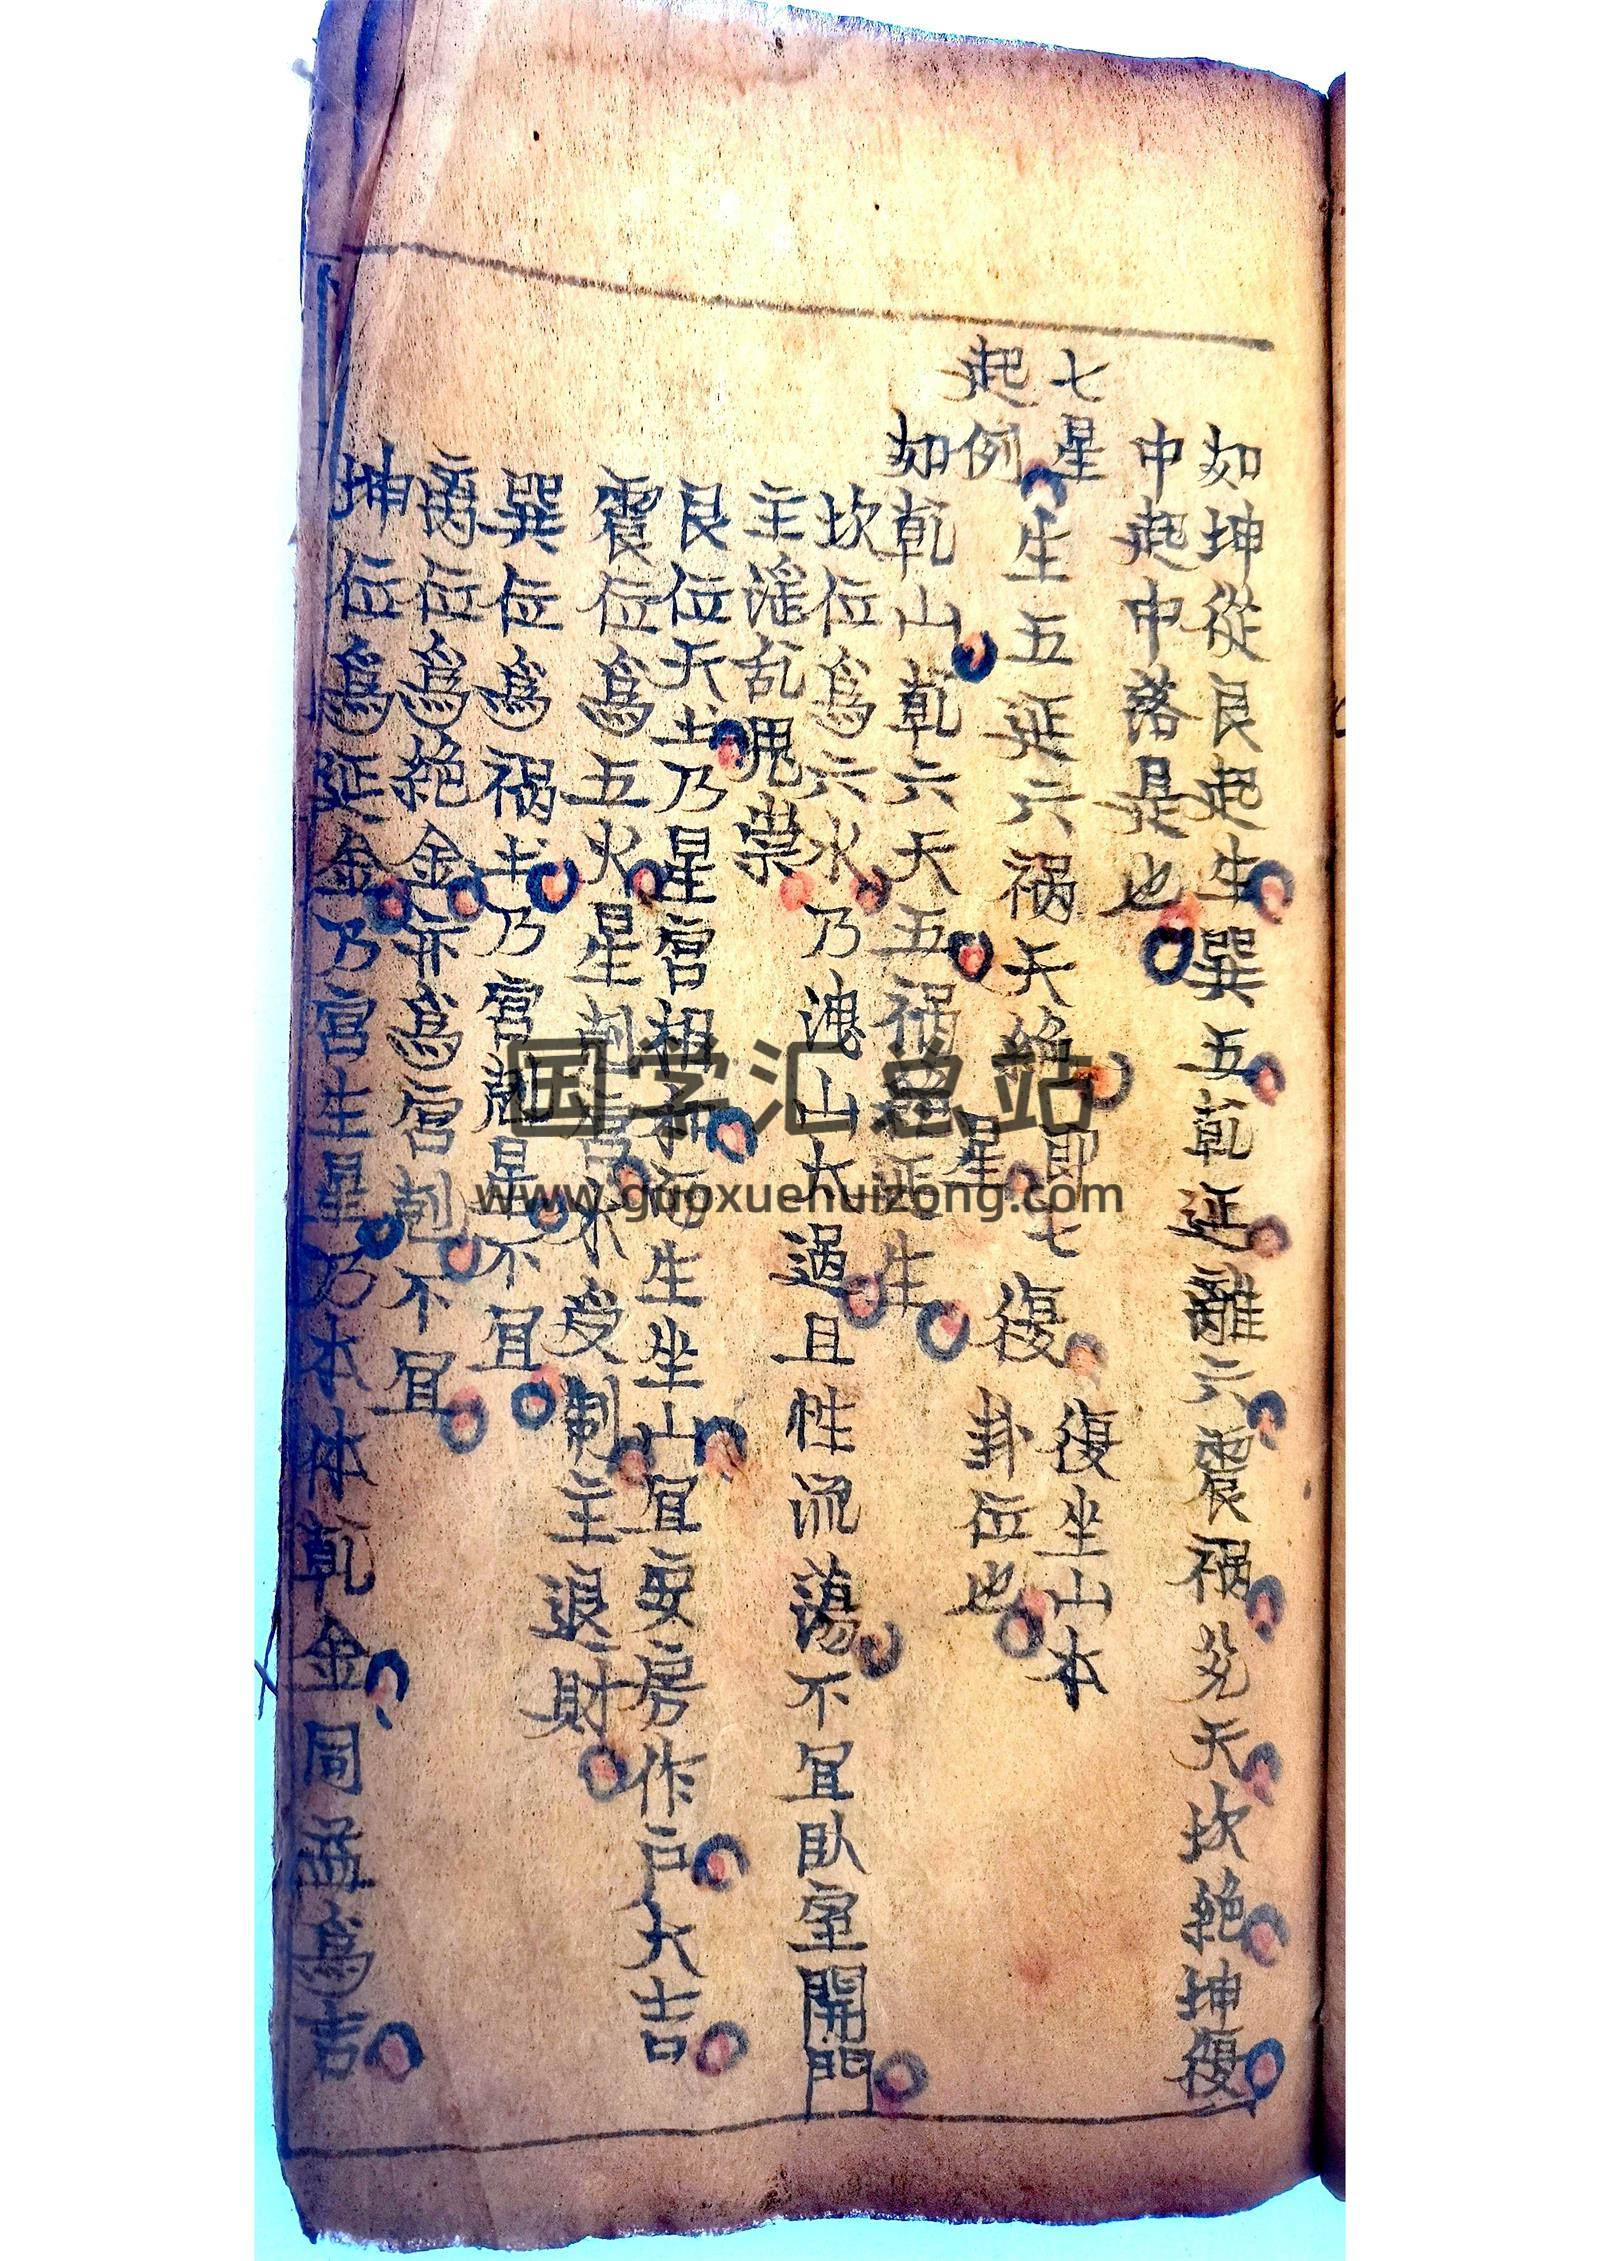 如坤從艮起生巽五乾延離六震禍兌天坎絕坤復
中起中落是也
七星
起例
生五延六禍天絕
即七
星
復
復坐山本
卦位也
如乾山乾六天五禍絕延生
坎位為六水乃洩山太過且性沉蕩不宜臥室開門
主淫乱鬼祟
艮位天土乃星宮相和而生坐山宜安房作戶大吉
震位為五火星剋宮木受制主退財
巽位為禍土乃宮剋星不宜
离位為絕金亦為宮剋不宜
坤位為延金乃宮生星乃本体乾金同為吉
国学汇总站
www.guoxuehuizong.com